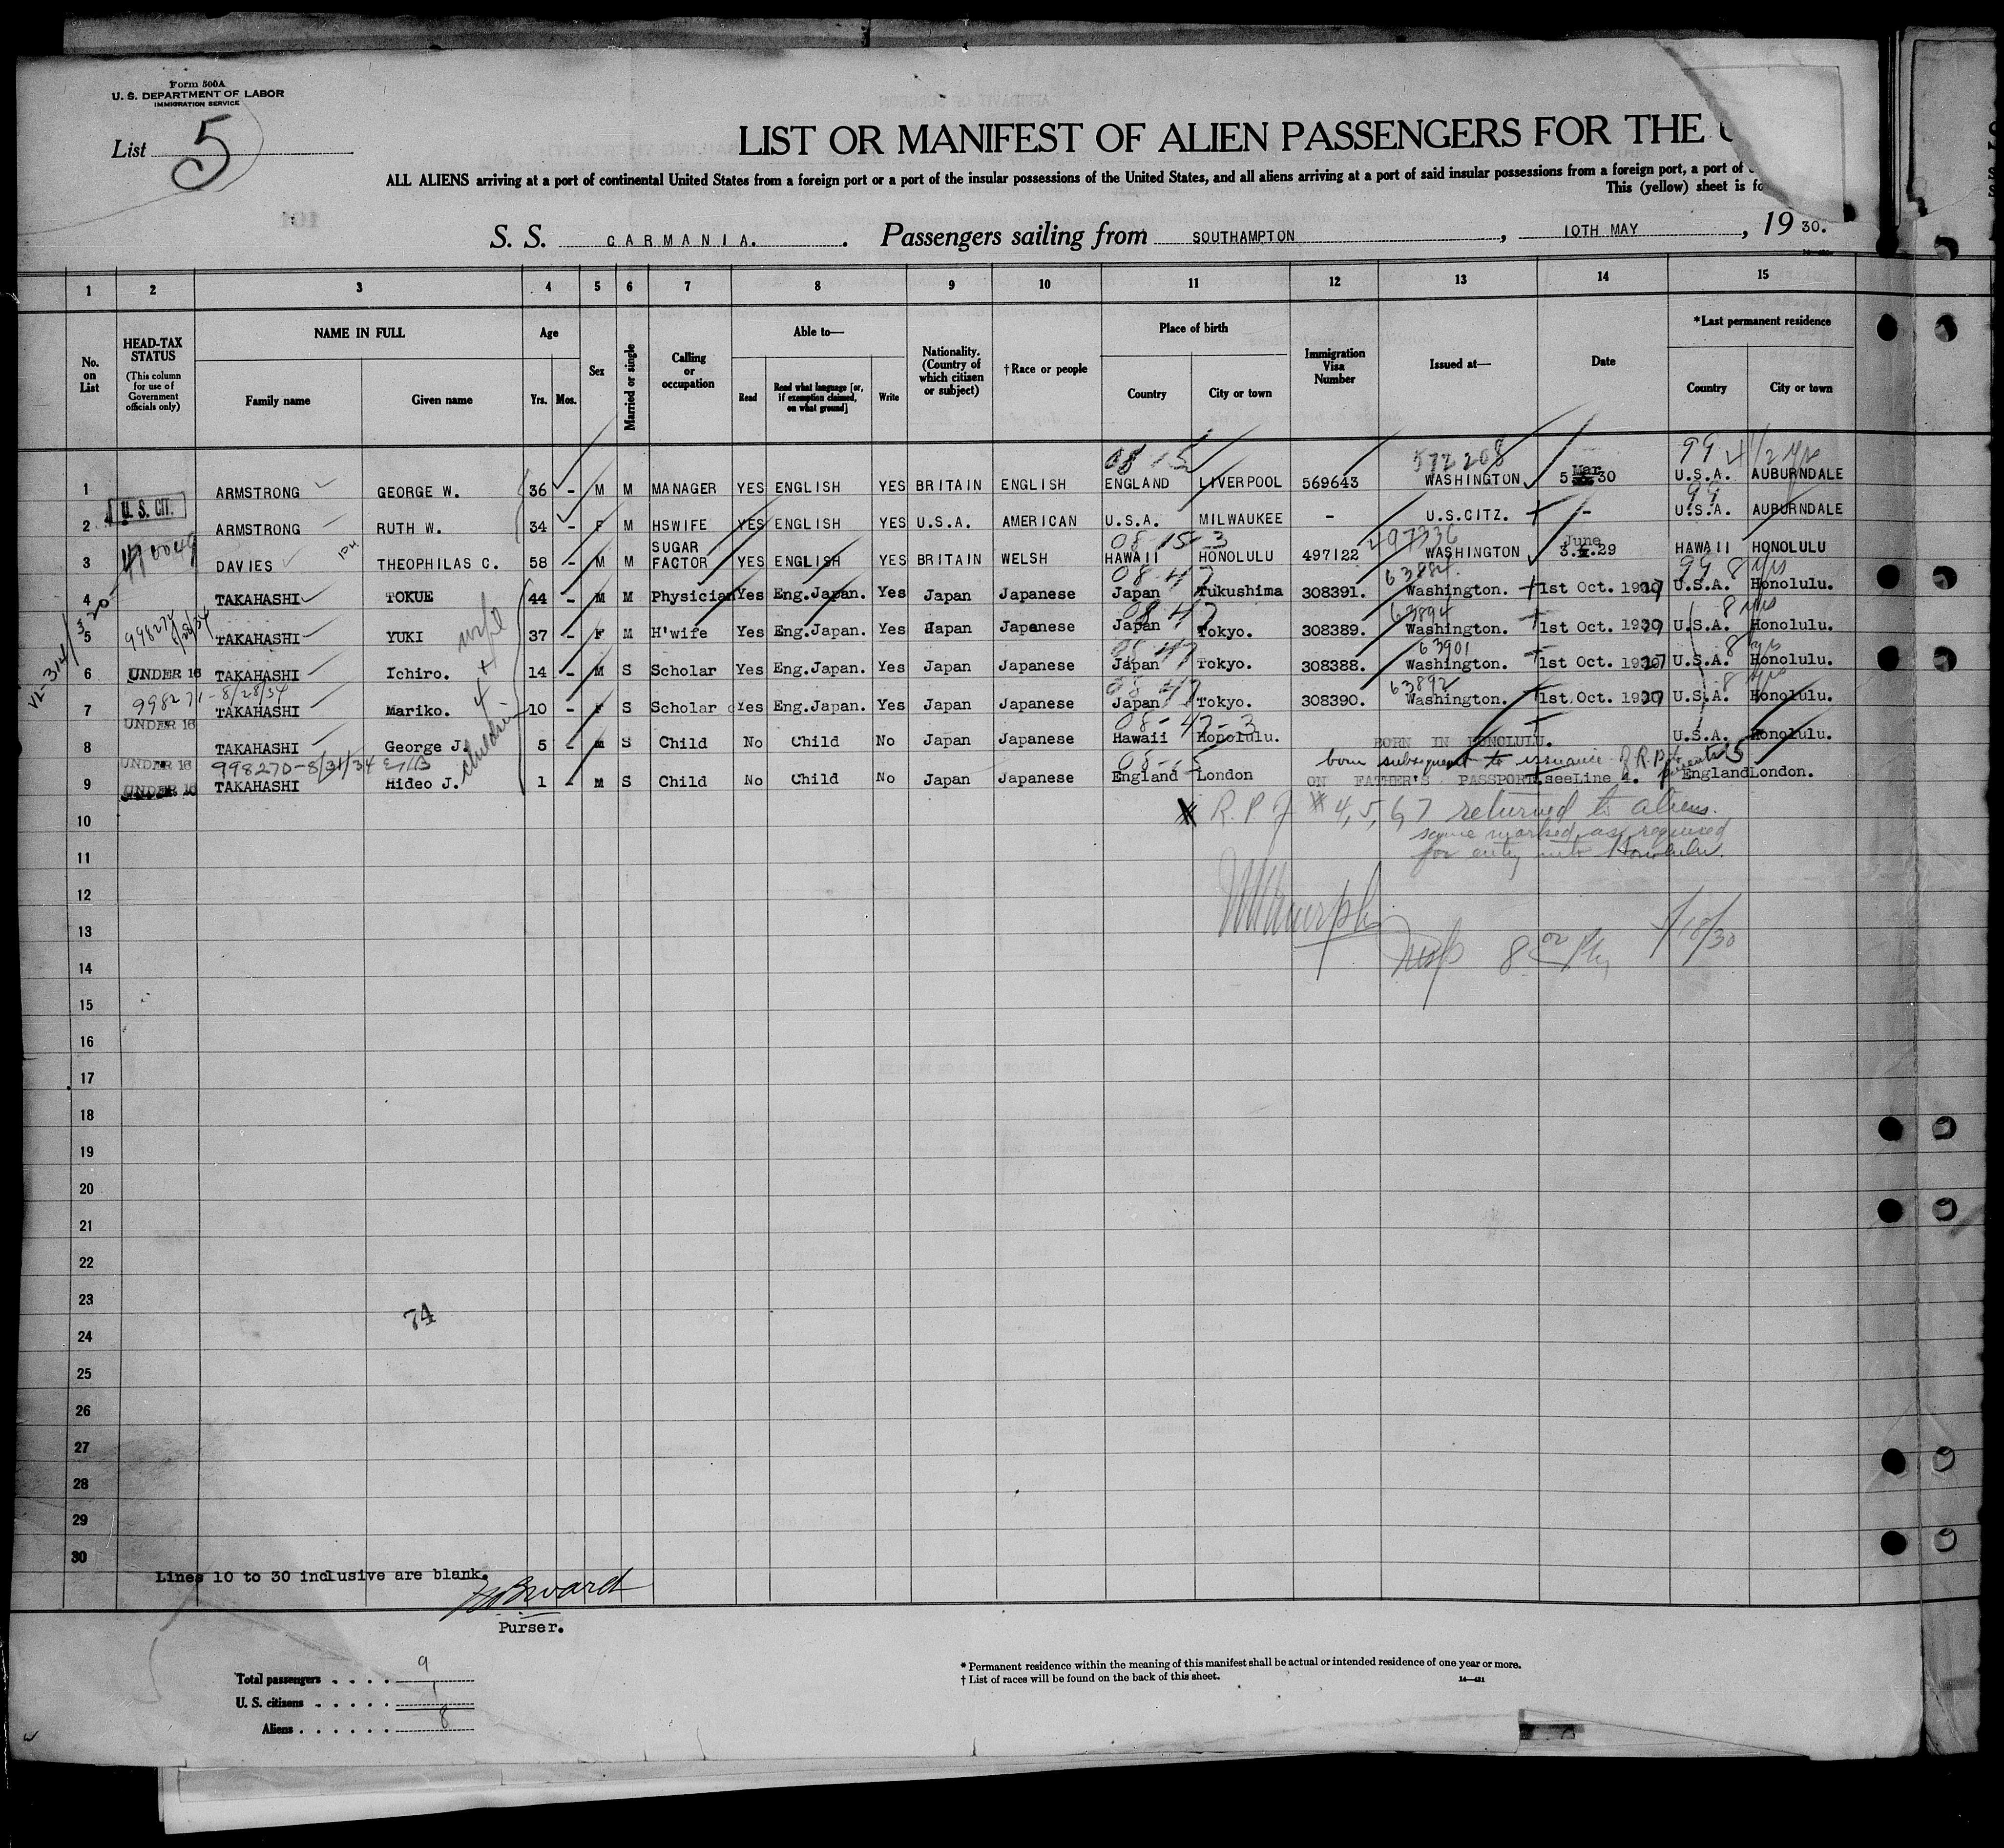 Form 500A
U. S. DEPARTMENT OF LABOR
IMMIGRATION SERVICE
List 5
LIST OR MANIFEST OF ALIEN PASSENGERS FOR THE
ALL ALIENS arriving at a port of continental United States from a foreign port or a port of the insular possessions of the United States, and all aliens arriving at a port of said insular possessions from a foreign port, a port of
This (yellow) sheet is
S. S. CARMANIA. Passengers sailing from SOUTHAMPTON, 10TH MAY, 19 30.
1 2 3 4 5 6 7 8 9 10 11 12 13 14 15
No. on List
HEAD-TAX STATUS (This column for use of Government officials only)
NAME IN FULL
Family name
Given name
Age
Yrs. Mos.
Sex
Married or single
Calling or occupation
Able to—
Read
Read what language [or, if exemption claimed, on what ground]
Write
Nationality. (Country of which citizen or subject)
†Race or people
Place of birth
Country
City or town
Immigration Visa Number
Issued at—
Date
*Last permanent residence
Country
City or town
08 15 572208 99 4 1/2 yrs
1 ARMSTRONG GEORGE W. 36 - M M MANAGER YES ENGLISH YES BRITAIN ENGLISH ENGLAND LIVERPOOL 569643 WASHINGTON 5 Mar 30 U.S.A. AUBURNDALE
U. S. CIT. 99
2 ARMSTRONG RUTH W. 34 - F M HSWIFE YES ENGLISH YES U.S.A. AMERICAN U.S.A. MILWAUKEE - U.S.CITZ. - U.S.A. AUBURNDALE
08-15-3 497336
3 DAVIES THEOPHILAS C. 58 - M M SUGAR FACTOR YES ENGLISH YES BRITAIN WELSH HAWAII HONOLULU 497122 WASHINGTON 3. June .29 HAWAII HONOLULU
08-47 63884 99 8 yrs
4 TAKAHASHI TOKUE 44 - M M Physician Yes Eng.Japan. Yes Japan Japanese Japan Tukushima 308391. Washington. 1st Oct. 1927 U.S.A. Honolulu.
998274 8/28/34 wife 08-47 63894 8 yrs
5 TAKAHASHI YUKI 37 - F M H'wife Yes Eng.Japan. Yes Japan Japanese Japan Tokyo. 308389. Washington. 1st Oct. 1927 U.S.A. Honolulu.
08-47 63901 8 yrs
6 UNDER 16 TAKAHASHI Ichiro. 14 - M S Scholar Yes Eng.Japan. Yes Japan Japanese Japan Tokyo. 308388. Washington. 1st Oct. 1927 U.S.A. Honolulu.
998271-8/28/34 4 children 08 47 63892 8 yrs
7 TAKAHASHI Mariko. 10 - F S Scholar Yes Eng.Japan. Yes Japan Japanese Japan Tokyo. 308390. Washington. 1st Oct. 1927 U.S.A. Honolulu.
UNDER 16 08-47-3
8 TAKAHASHI George J. 5 - M S Child No Child No Japan Japanese Hawaii Honolulu. BORN IN HONOLULU. U.S.A. Honolulu.
UNDER 16 998270-8/31/34 08-5 born subsequent to issuance of R.P. parents 5
9 UNDER 16 TAKAHASHI Hideo J. 1 - M S Child No Child No Japan Japanese England London ON FATHER'S PASSPORT.see Line 4. England London.
10 R.P of #4,5,6,7 returned to aliens.
same marked as required
11 for entry into Honolulu.
12
13 5/18/30
14 Insp
15
16
17
18
19
20
21
22
23
74
24
25
26
27
28
29
30
Lines 10 to 30 inclusive are blank.
Purser.
Total passengers . . . . 9
U. S. citizens . . . . . 1
Aliens . . . . . . 8
* Permanent residence within the meaning of this manifest shall be actual or intended residence of one year or more.
† List of races will be found on the back of this sheet.
14—421